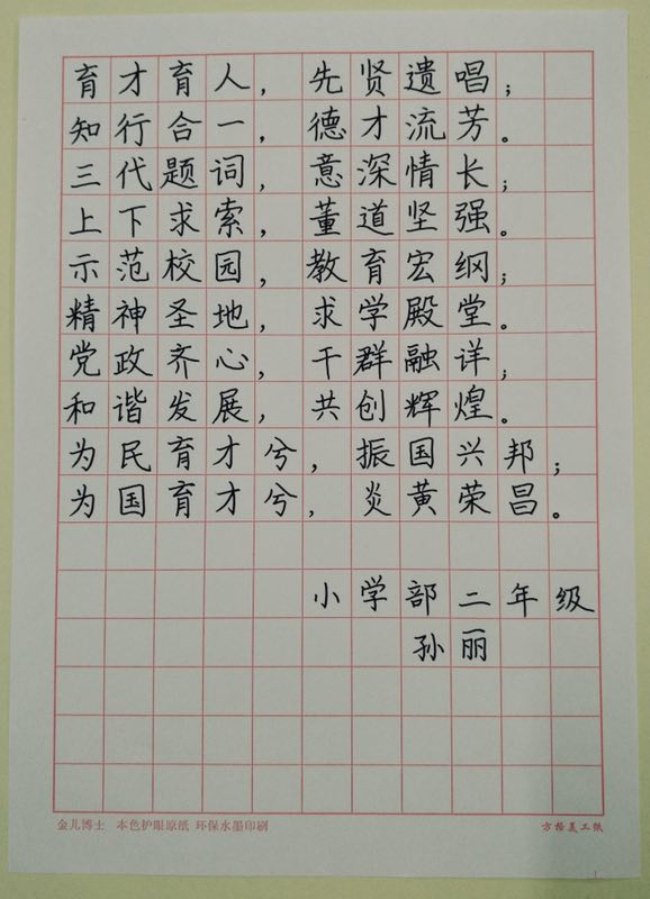 育才育人，先贤遗唱；
知行合一，德才流芳。
三代题词，意深情长；
上下求索，董道坚强。
示范校园，教育宏纲；
精神圣地，求学殿堂。
党政齐心，干群融详；
和谐发展，共创辉煌。
为民育才兮，振国兴邦；
为国育才兮，炎黄荣昌。
小学部二年级
孙丽
金儿博士 本色护眼原纸 环保水墨印刷 方格美工纸